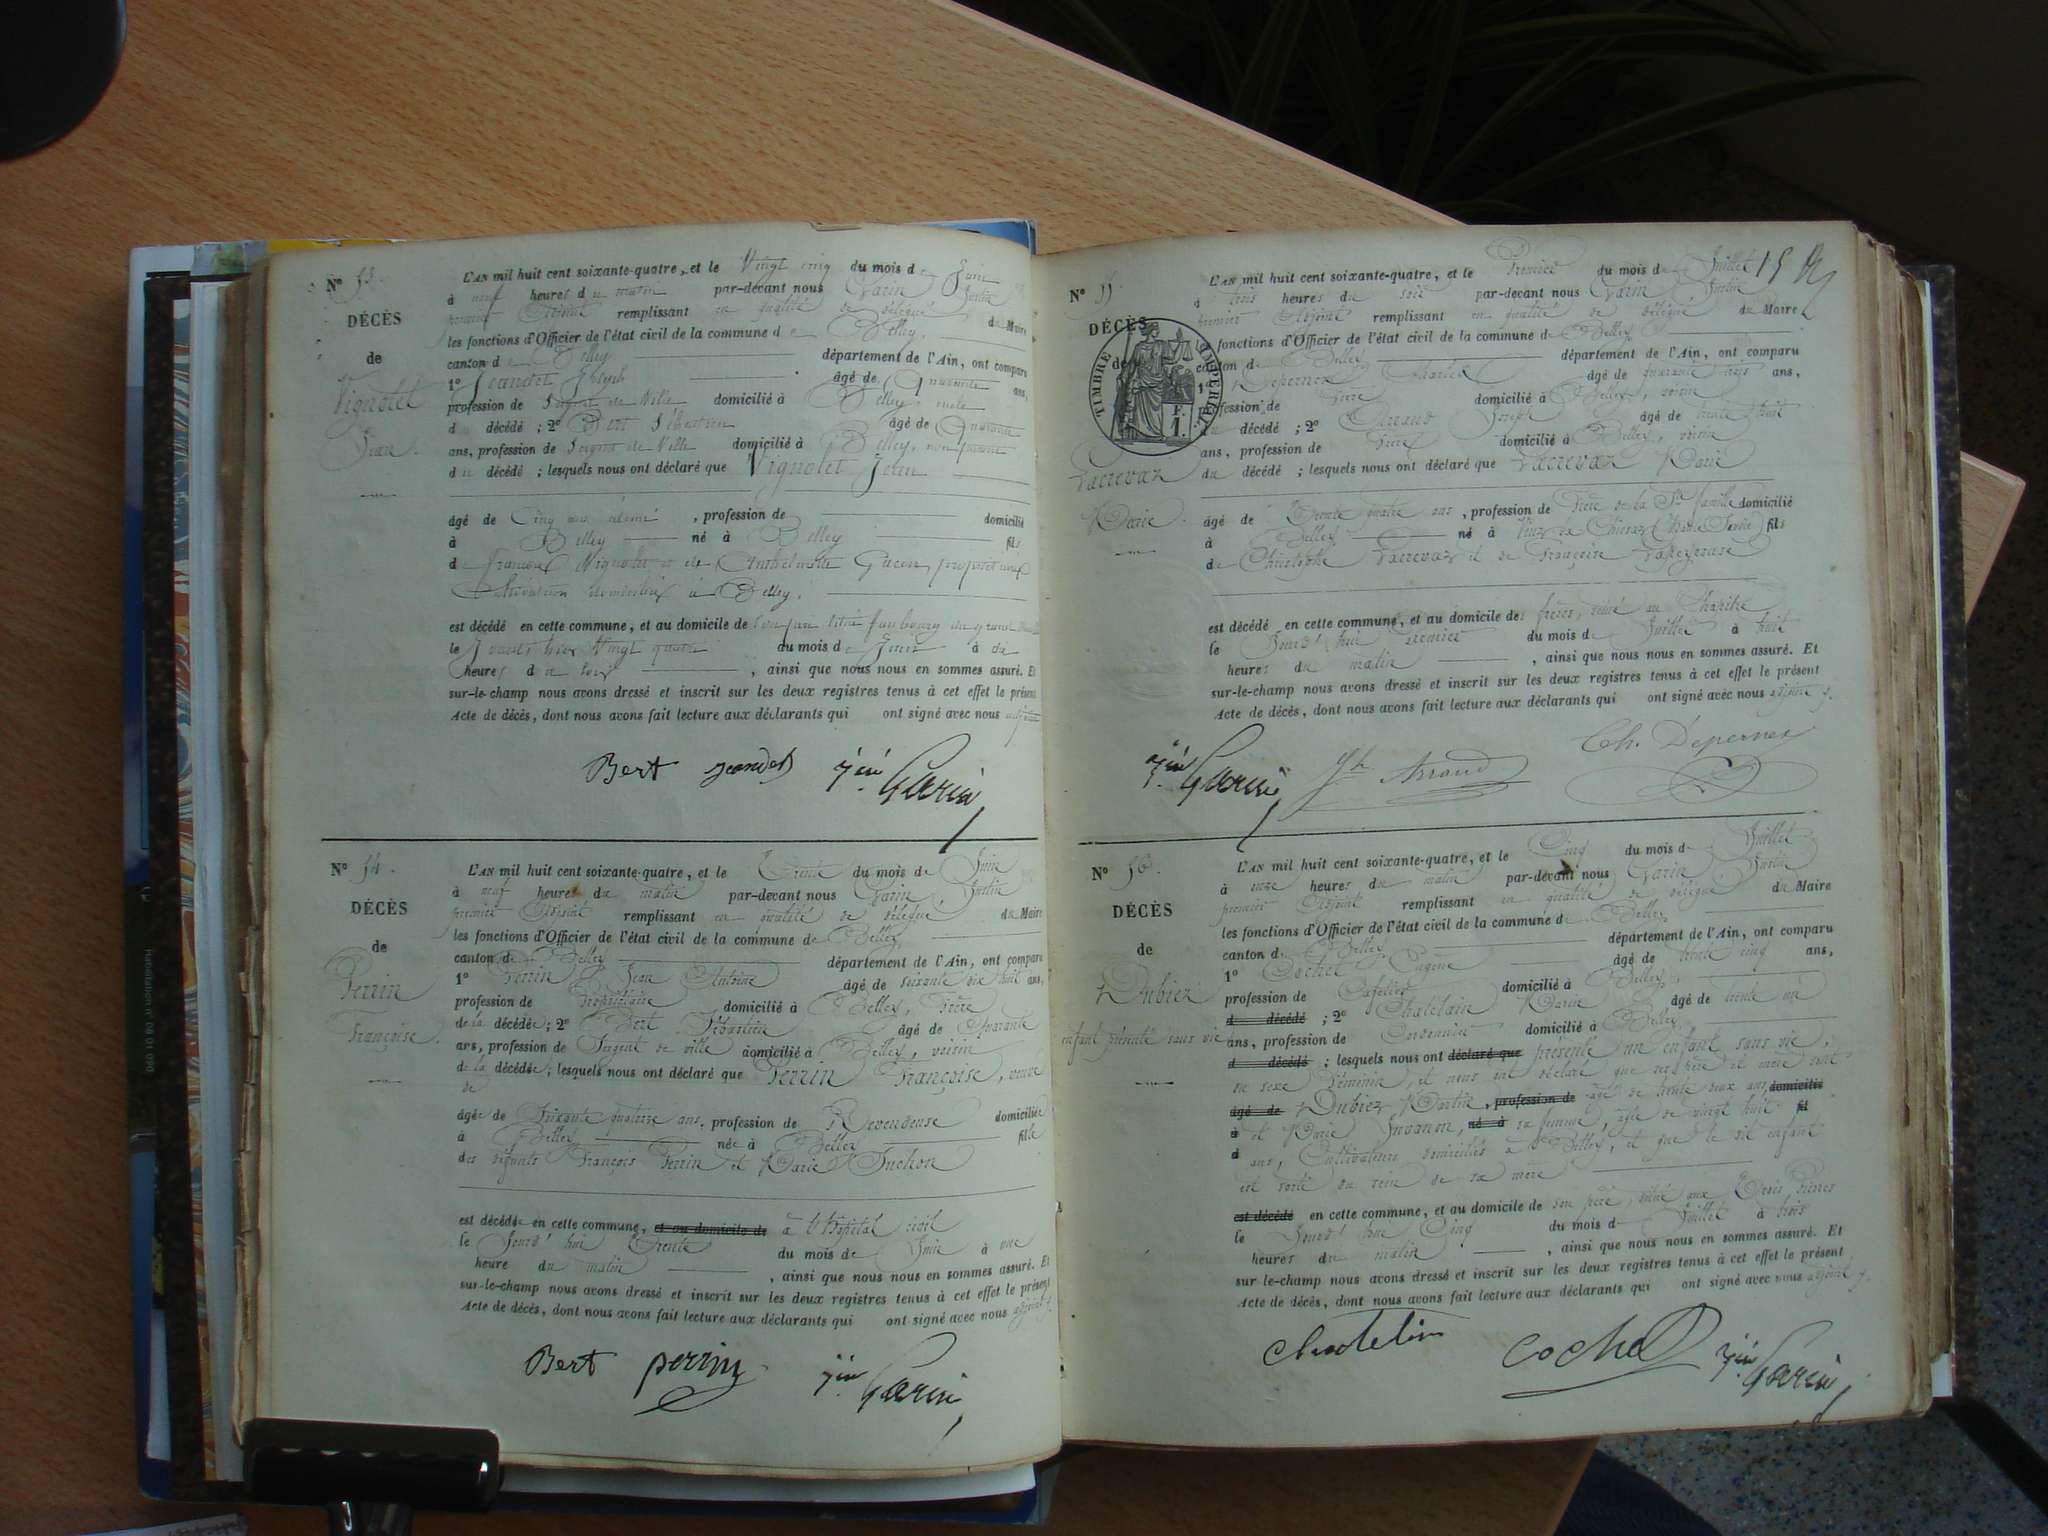 N° 53.
DÉCÈS
de
Vignolet
Jean.
L'AN mil huit cent soixante-quatre, et le Vingt cinq du mois de Juin
à neuf heures du matin par-devant nous Garin Justin
premier Adjoint remplissant en qualité de délégué du Maire
les fonctions d'Officier de l'état civil de la commune de Belley.
canton de Belley département de l'Ain, ont comparu
1° Jeandet Joseph âgé de Quarante ans,
profession de Sergent de Ville domicilié à Belley,
du décédé ; 2° Bert Sébastien âgé de Quarante
ans, profession de Sergent de Ville domicilié à Belley, non parent
du décédé ; lesquels nous ont déclaré que Vignolet Jean
âgé de Cinq ans , profession de domicilié
à Belley né à Belley fils
de François Vignolet et de Anthelmette propriétaires
Cultivateurs domiciliés à Belley.
est décédé en cette commune, et au domicile de son père situé faubourg du grand
le jour d'hier Vingt quatre du mois de Juin à
heures du soir , ainsi que nous nous en sommes assuré. Et
sur-le-champ nous avons dressé et inscrit sur les deux registres tenus à cet effet le présent
Acte de décès, dont nous avons fait lecture aux déclarants qui ont signé avec nous adjoint
Bert Jeandet Jin Garin
N° 54.
DÉCÈS
de
Perrin
Françoise.
L'AN mil huit cent soixante-quatre, et le Trente du mois de Juin
à neuf heures du matin par-devant nous Garin Justin
premier Adjoint remplissant en qualité de délégué du Maire
les fonctions d'Officier de l'état civil de la commune de Belley,
canton de Belley département de l'Ain, ont comparu
1° Perrin Jean Antoine âgé de soixante dix huit ans,
profession de Propriétaire domicilié à Belley, frère
de la décédée; 2° Bert Sébastien âgé de Quarante
ans, profession de Sergent de ville domicilié à Belley, voisin
de la décédée; lesquels nous ont déclaré que Perrin Françoise, veuve
de
âgée de Soixante quatorze ans, profession de Revendeuse domiciliée
à Belley née à Belley fille
des défunts François Perrin et Marie Tuchon
est décédée en cette commune, et au domicile de à l'hôpital civil
le Jourd'hui Trente du mois de Juin à une
heure du matin , ainsi que nous nous en sommes assuré. Et
sur-le-champ nous avons dressé et inscrit sur les deux registres tenus à cet effet le présent
Acte de décès, dont nous avons fait lecture aux déclarants qui ont signé avec nous adjoint
Bert perrin Jin Garin
15
N° 55
DÉCÈS
de
TIMBRE IMPERIAL
1 F.
Lacrevaz
Marie.
L'AN mil huit cent soixante-quatre, et le Premier du mois de Juillet
à trois heures du soir par-devant nous Garin Justin
premier Adjoint remplissant en qualité de délégué du Maire
les fonctions d'Officier de l'état civil de la commune de Belley
canton de Belley département de l'Ain, ont comparu
1° Depernex Charles âgé de quarante trois ans,
profession de Frère domicilié à Belley, voisin
du décédé ; 2° Arraud Joseph âgé de trente huit
ans, profession de Frère domicilié à Belley, voisin
du décédé ; lesquels nous ont déclaré que Lacrevaz Marie
âgé de Trente quatre ans , profession de Frère de la Ste famille domicilié
à Belley né à fils
de Christophe Lacrevaz et de Françoise
est décédé en cette commune, et au domicile des frères, situé au Chapitre
le Jourd'hui Premier du mois de Juillet à huit
heures du matin , ainsi que nous nous en sommes assuré. Et
sur-le-champ nous avons dressé et inscrit sur les deux registres tenus à cet effet le présent
Acte de décès, dont nous avons fait lecture aux déclarants qui ont signé avec nous adjoint
Jin Garin Jh Arraud Ch. Depernex
N° 56.
DÉCÈS
de
Dubiez
enfant présenté sans vie
L'AN mil huit cent soixante-quatre, et le Cinq du mois de Juillet
à onze heures du matin par-devant nous Garin Justin
premier Adjoint remplissant en qualité de délégué du Maire
les fonctions d'Officier de l'état civil de la commune de Belley
canton de Belley département de l'Ain, ont comparu
1° Cochet Eugène âgé de trente cinq ans,
profession de Cafetier domicilié à Belley,
d décédé ; 2° Chatelain Marin âgé de trente un
ans, profession de Cordonnier domicilié à Belley,
d décédé ; lesquels nous ont déclaré que présenté un enfant sans vie,
du sexe féminin, et nous ont déclaré que ses père et mère sont
âgé de Dubiez Martin, profession de âgé de trente deux ans, domicilié
à et Marie Juvanon, né à sa femme, âgée de vingt huit fil
d ans, Cultivateurs domiciliés à Belley, et que le dit enfant
est sorti du sein de sa mère
est décédé en cette commune, et au domicile de son père, situé aux Trois Pierres
le Jourd'hui Cinq du mois de Juillet à trois
heures du matin , ainsi que nous nous en sommes assuré. Et
sur le-champ nous avons dressé et inscrit sur les deux registres tenus à cet effet le présent
Acte de décès, dont nous avons fait lecture aux déclarants qui ont signé avec nous adjoint
Chatelin Cochet Jin Garin